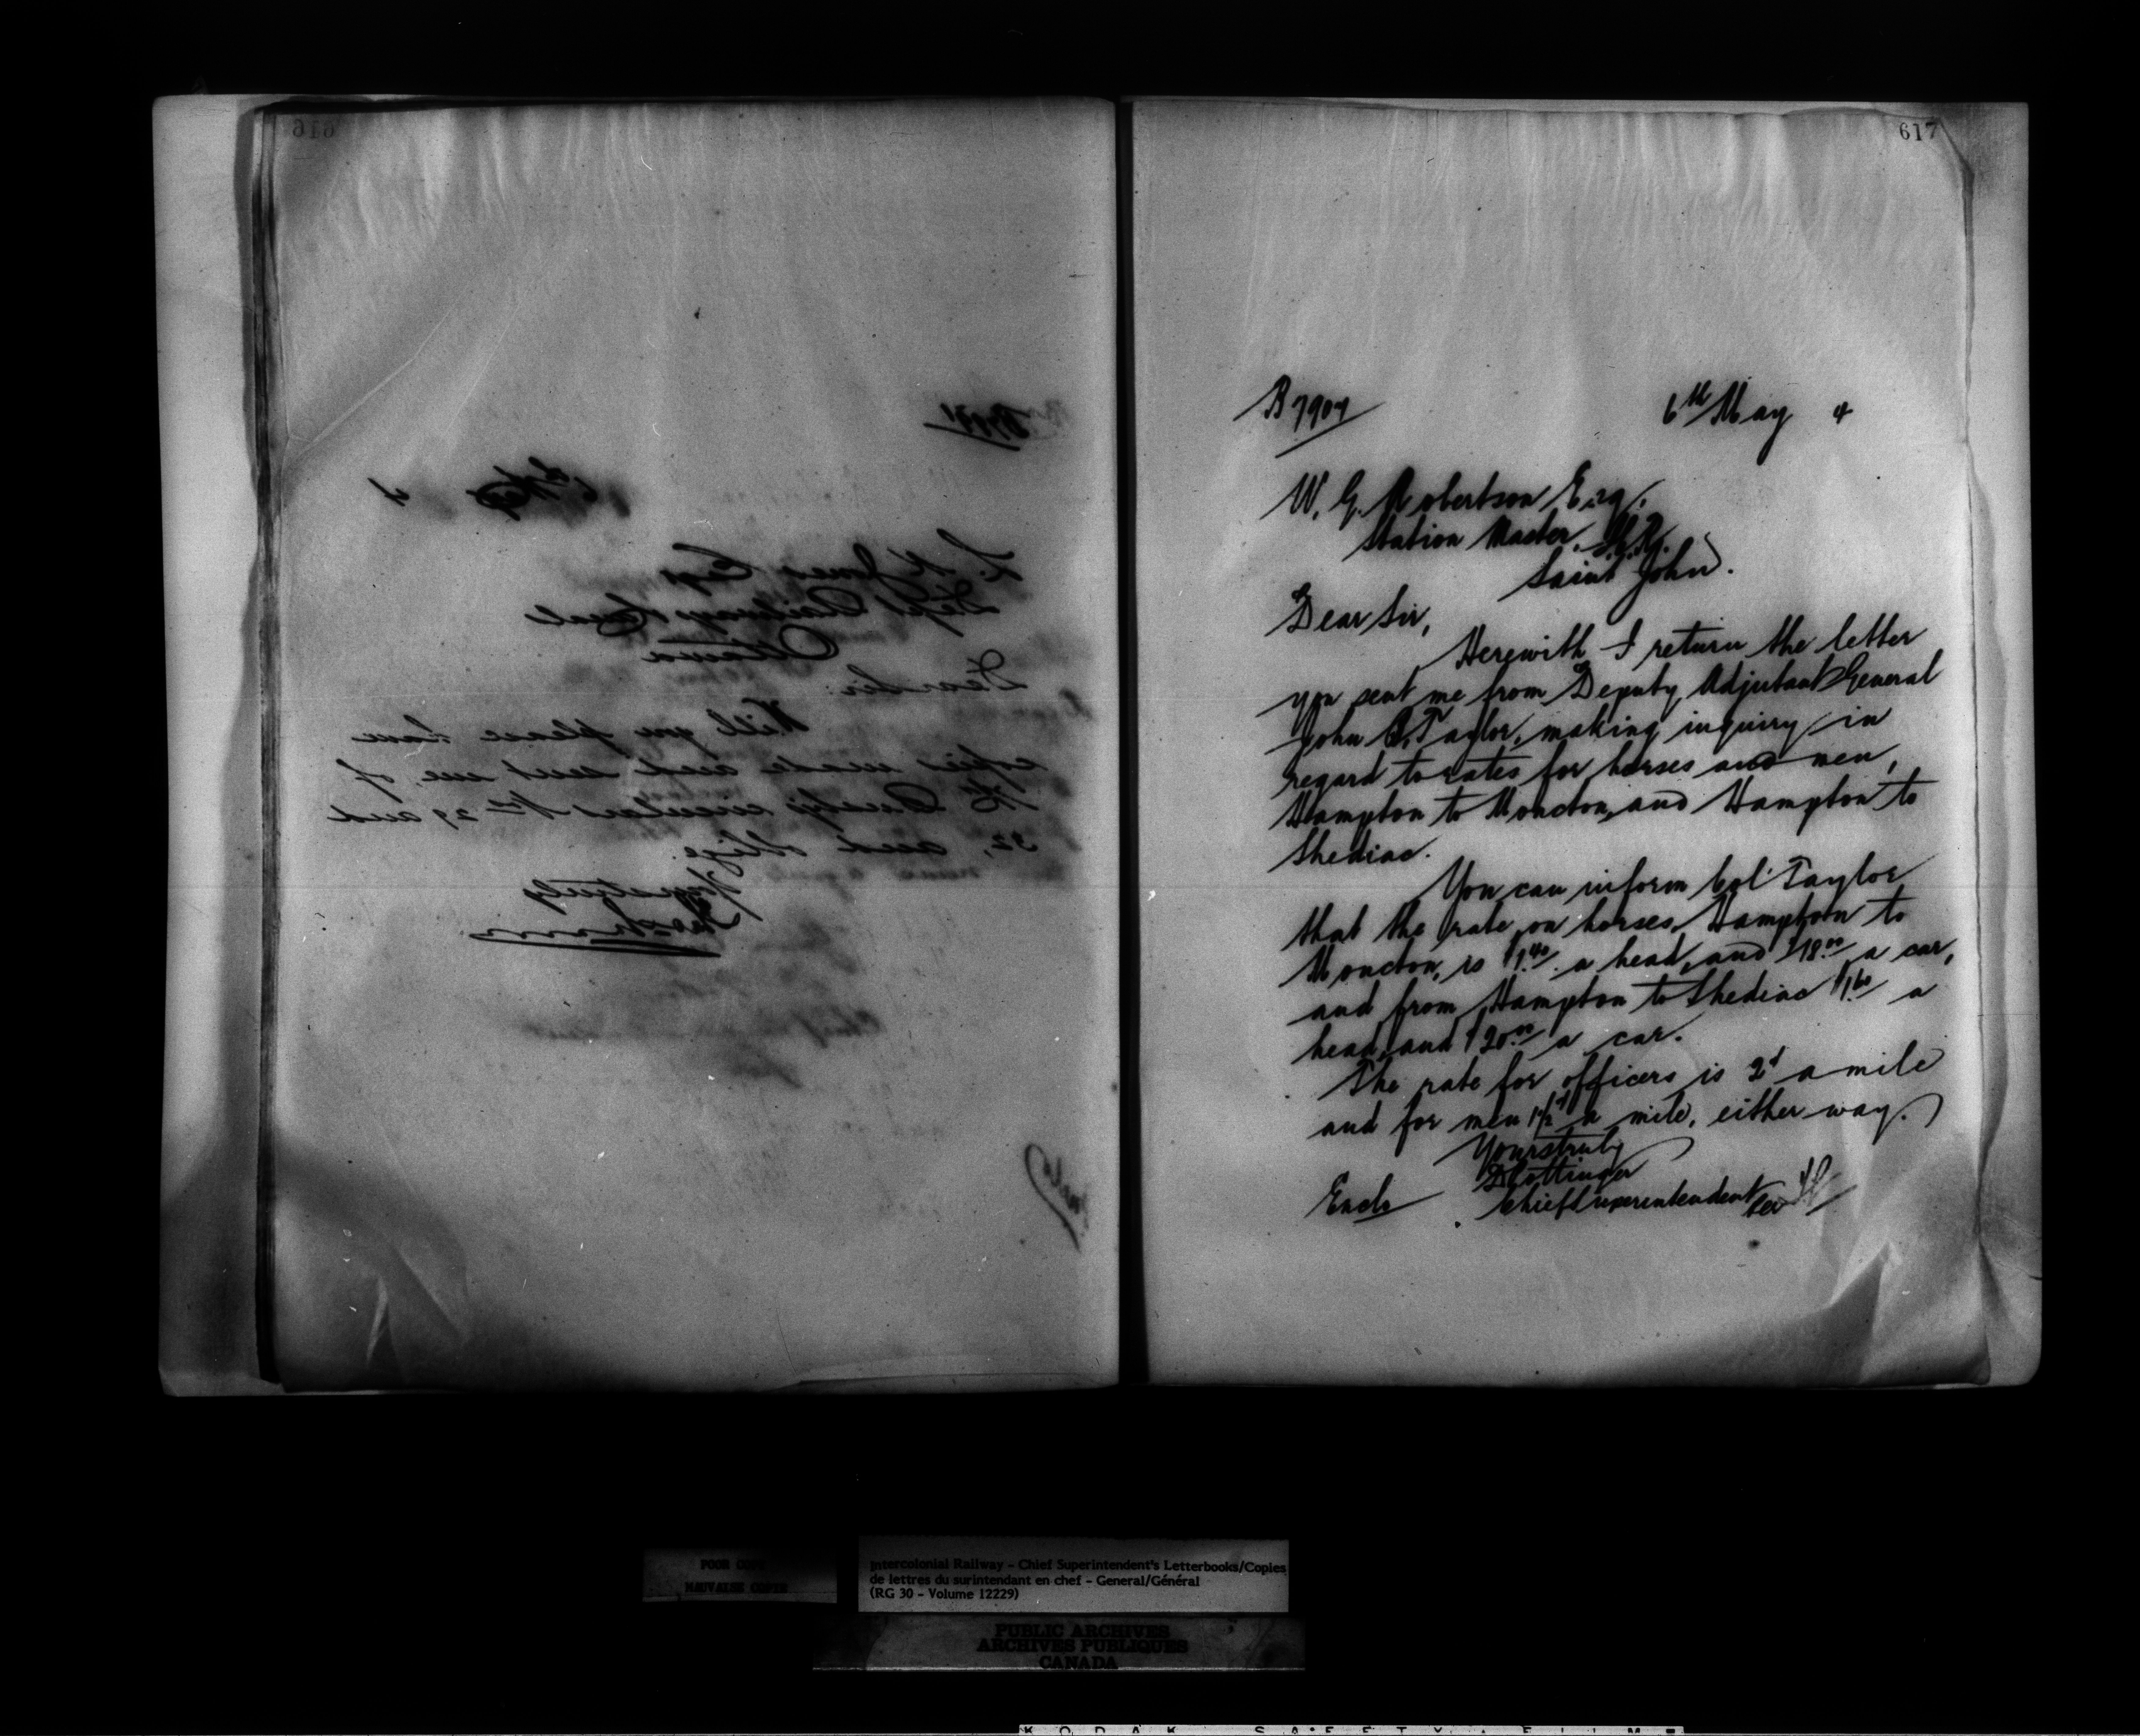 617
B 7907
6th May 4
W. G. Robertson Esq.
Station Master. I.C.R.
Saint John.
Dear Sir,
Herewith I return the letter
you sent me from Deputy Adjutant General
John B. Taylor, making inquiry in
regard to rates for horses and men,
Hampton to Moncton, and Hampton to
Shediac.
You can inform Col. Taylor
that the rate on horses, Hampton to
Moncton, is $1.40 a head, and $18.00 a car,
and from Hampton to Shediac $1.60 a
head, and $20.00 a car.
The rate for officers is 2¢ a mile
and for men 1½¢ a mile, either way.
Yours truly
D Pottinger
Chief Superintendent
Encls
616
6th May 4
L. K. Jones Esq
Dept Railways & Canals
Ottawa
Dear Sir:
Will you please have
copies made and sent me, of
circulars Nos 29 and
32, and oblige.
Yours truly
POOR COPY
MAUVAISE COPIE
Intercolonial Railway - Chief Superintendent's Letterbooks/Copies
de lettres du surintendant en chef - General/Général
(RG 30 - Volume 12229)
PUBLIC ARCHIVES
ARCHIVES PUBLIQUES
CANADA
KODAK SAFETY FILM